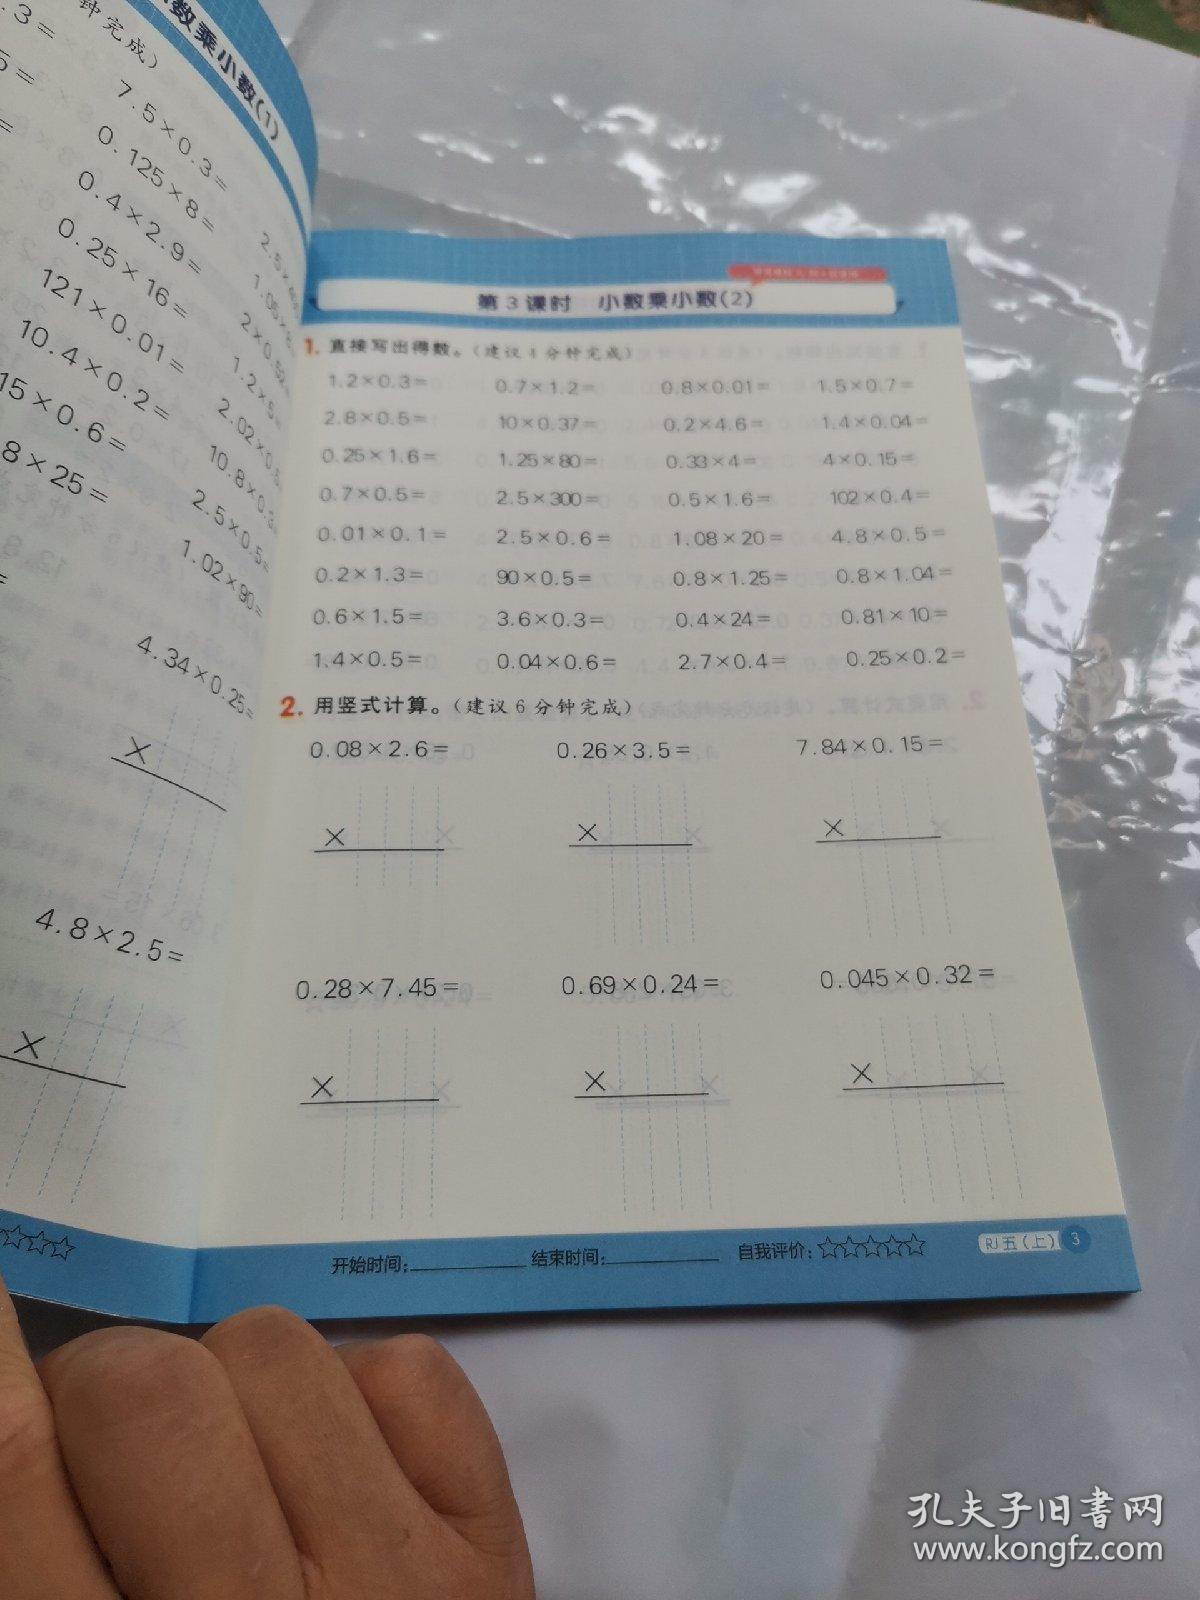 数乘小数(1)
钟完成)
.3=
5=
=
7.5×0.3=
0.125×8=
0.4×2.9=
0.25×16=
121×0.01=
10.4×0.2=
15×0.6=
8×25=
2.5×
1.05×
2×0.
1.2×5=
2.02×0.
10.8×0.3
2.5×0.5=
1.02×90=
4.34×0.25=
×
4.8×2.5=
×
第3课时 小数乘小数(2)
1. 直接写出得数。(建议4分钟完成)
1.2×0.3= 0.7×1.2= 0.8×0.01= 1.5×0.7=
2.8×0.5= 10×0.37= 0.2×4.6= 1.4×0.04=
0.25×1.6= 1.25×80= 0.33×4= 4×0.15=
0.7×0.5= 2.5×300= 0.5×1.6= 102×0.4=
0.01×0.1= 2.5×0.6= 1.08×20= 4.8×0.5=
0.2×1.3= 90×0.5= 0.8×1.25= 0.8×1.04=
0.6×1.5= 3.6×0.3= 0.4×24= 0.81×10=
1.4×0.5= 0.04×0.6= 2.7×0.4= 0.25×0.2=
2. 用竖式计算。(建议6分钟完成)
0.08×2.6= 0.26×3.5= 7.84×0.15=
× × ×
0.28×7.45= 0.69×0.24= 0.045×0.32=
× × ×
开始时间: 结束时间: 自我评价:☆☆☆☆☆ RJ五(上) 3
孔夫子旧书网
www.kongfz.com